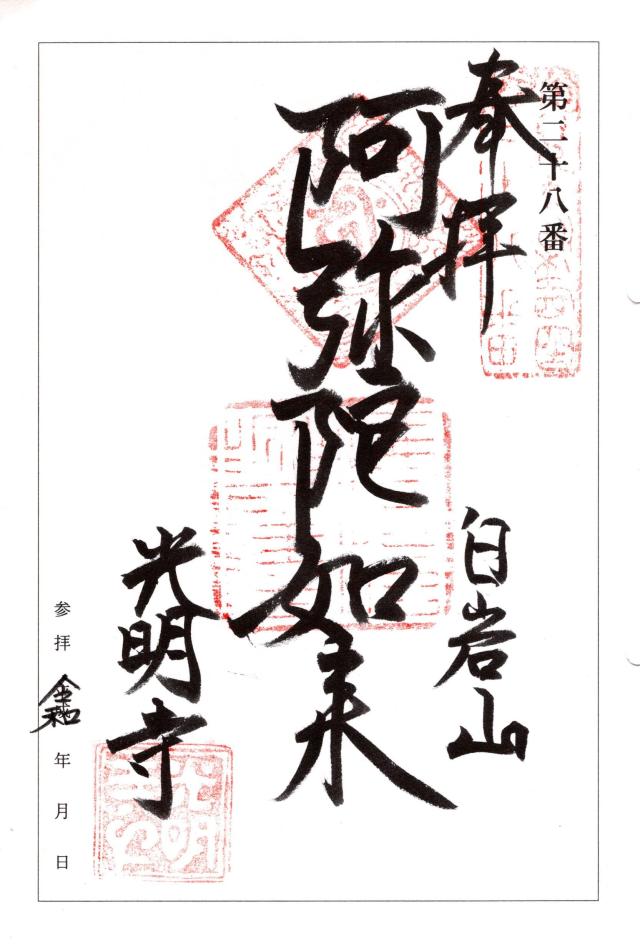 第二十八番
奉拝
白岩山
阿弥陀如来
光明寺
参拝 令和 年 月 日